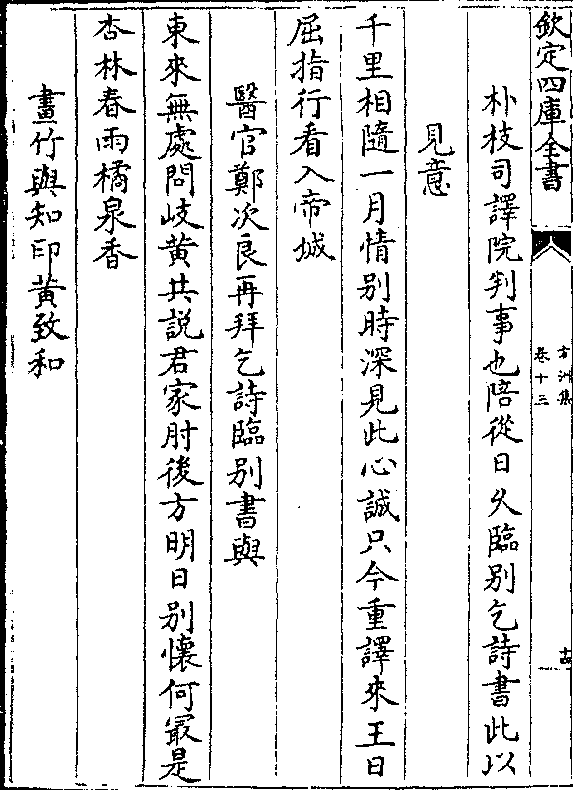 欽定四庫全書
方洲集
卷十三
十四
朴枝司譯院判事也陪從日久臨別乞詩書此以
見意
千里相隨一月情别時深見此心誠只今重譯來王日
屈指行看入帝城
醫官鄭次良再拜乞詩臨别書與
東來無處問岐黄共説君家肘後方明日别懷何㝡是
杏林春雨橘泉香
畫竹與知印黄致和